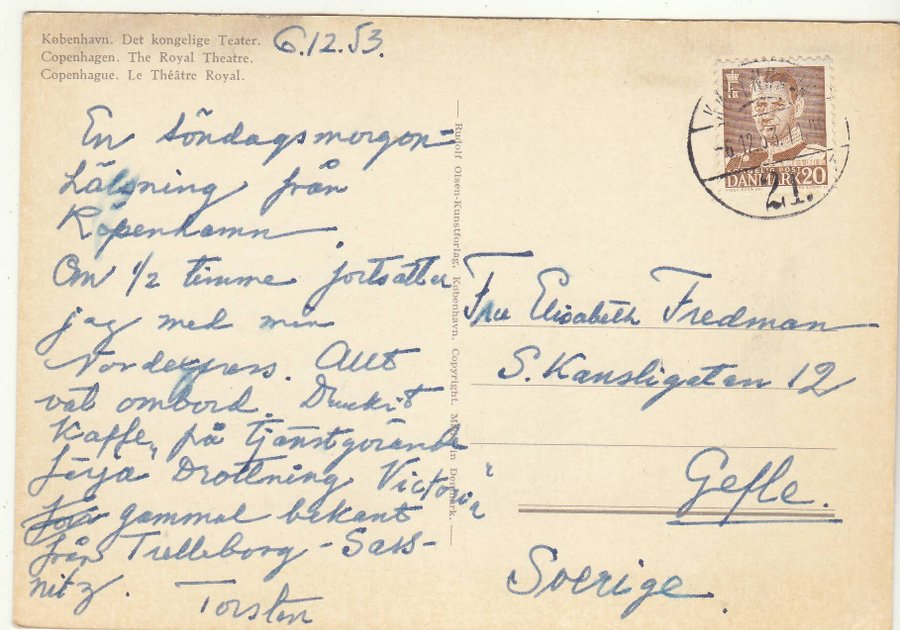 København. Det kongelige Teater.
Copenhagen. The Royal Theatre.
Copenhague. Le Théâtre Royal.
6.12.53.
En söndagsmorgon-
hälsning från
Köpenhamn.
Om 1/2 timme fortsätter
jag med min
Nordexpress. Allt
väl ombord. Druckit
kaffe på tjänstgörande
färja "Drottning Victoria"
gammal bekant
från Trelleborg-Sass-
nitz. Torsten
Rudolf Olsen-Kunstforlag, København. Copyright. Made in Denmark.
6.12.53.
DANMARK 20
21.
Fru Elisabeth Fredman
S. Kansligatan 12
Gefle.
Sverige.